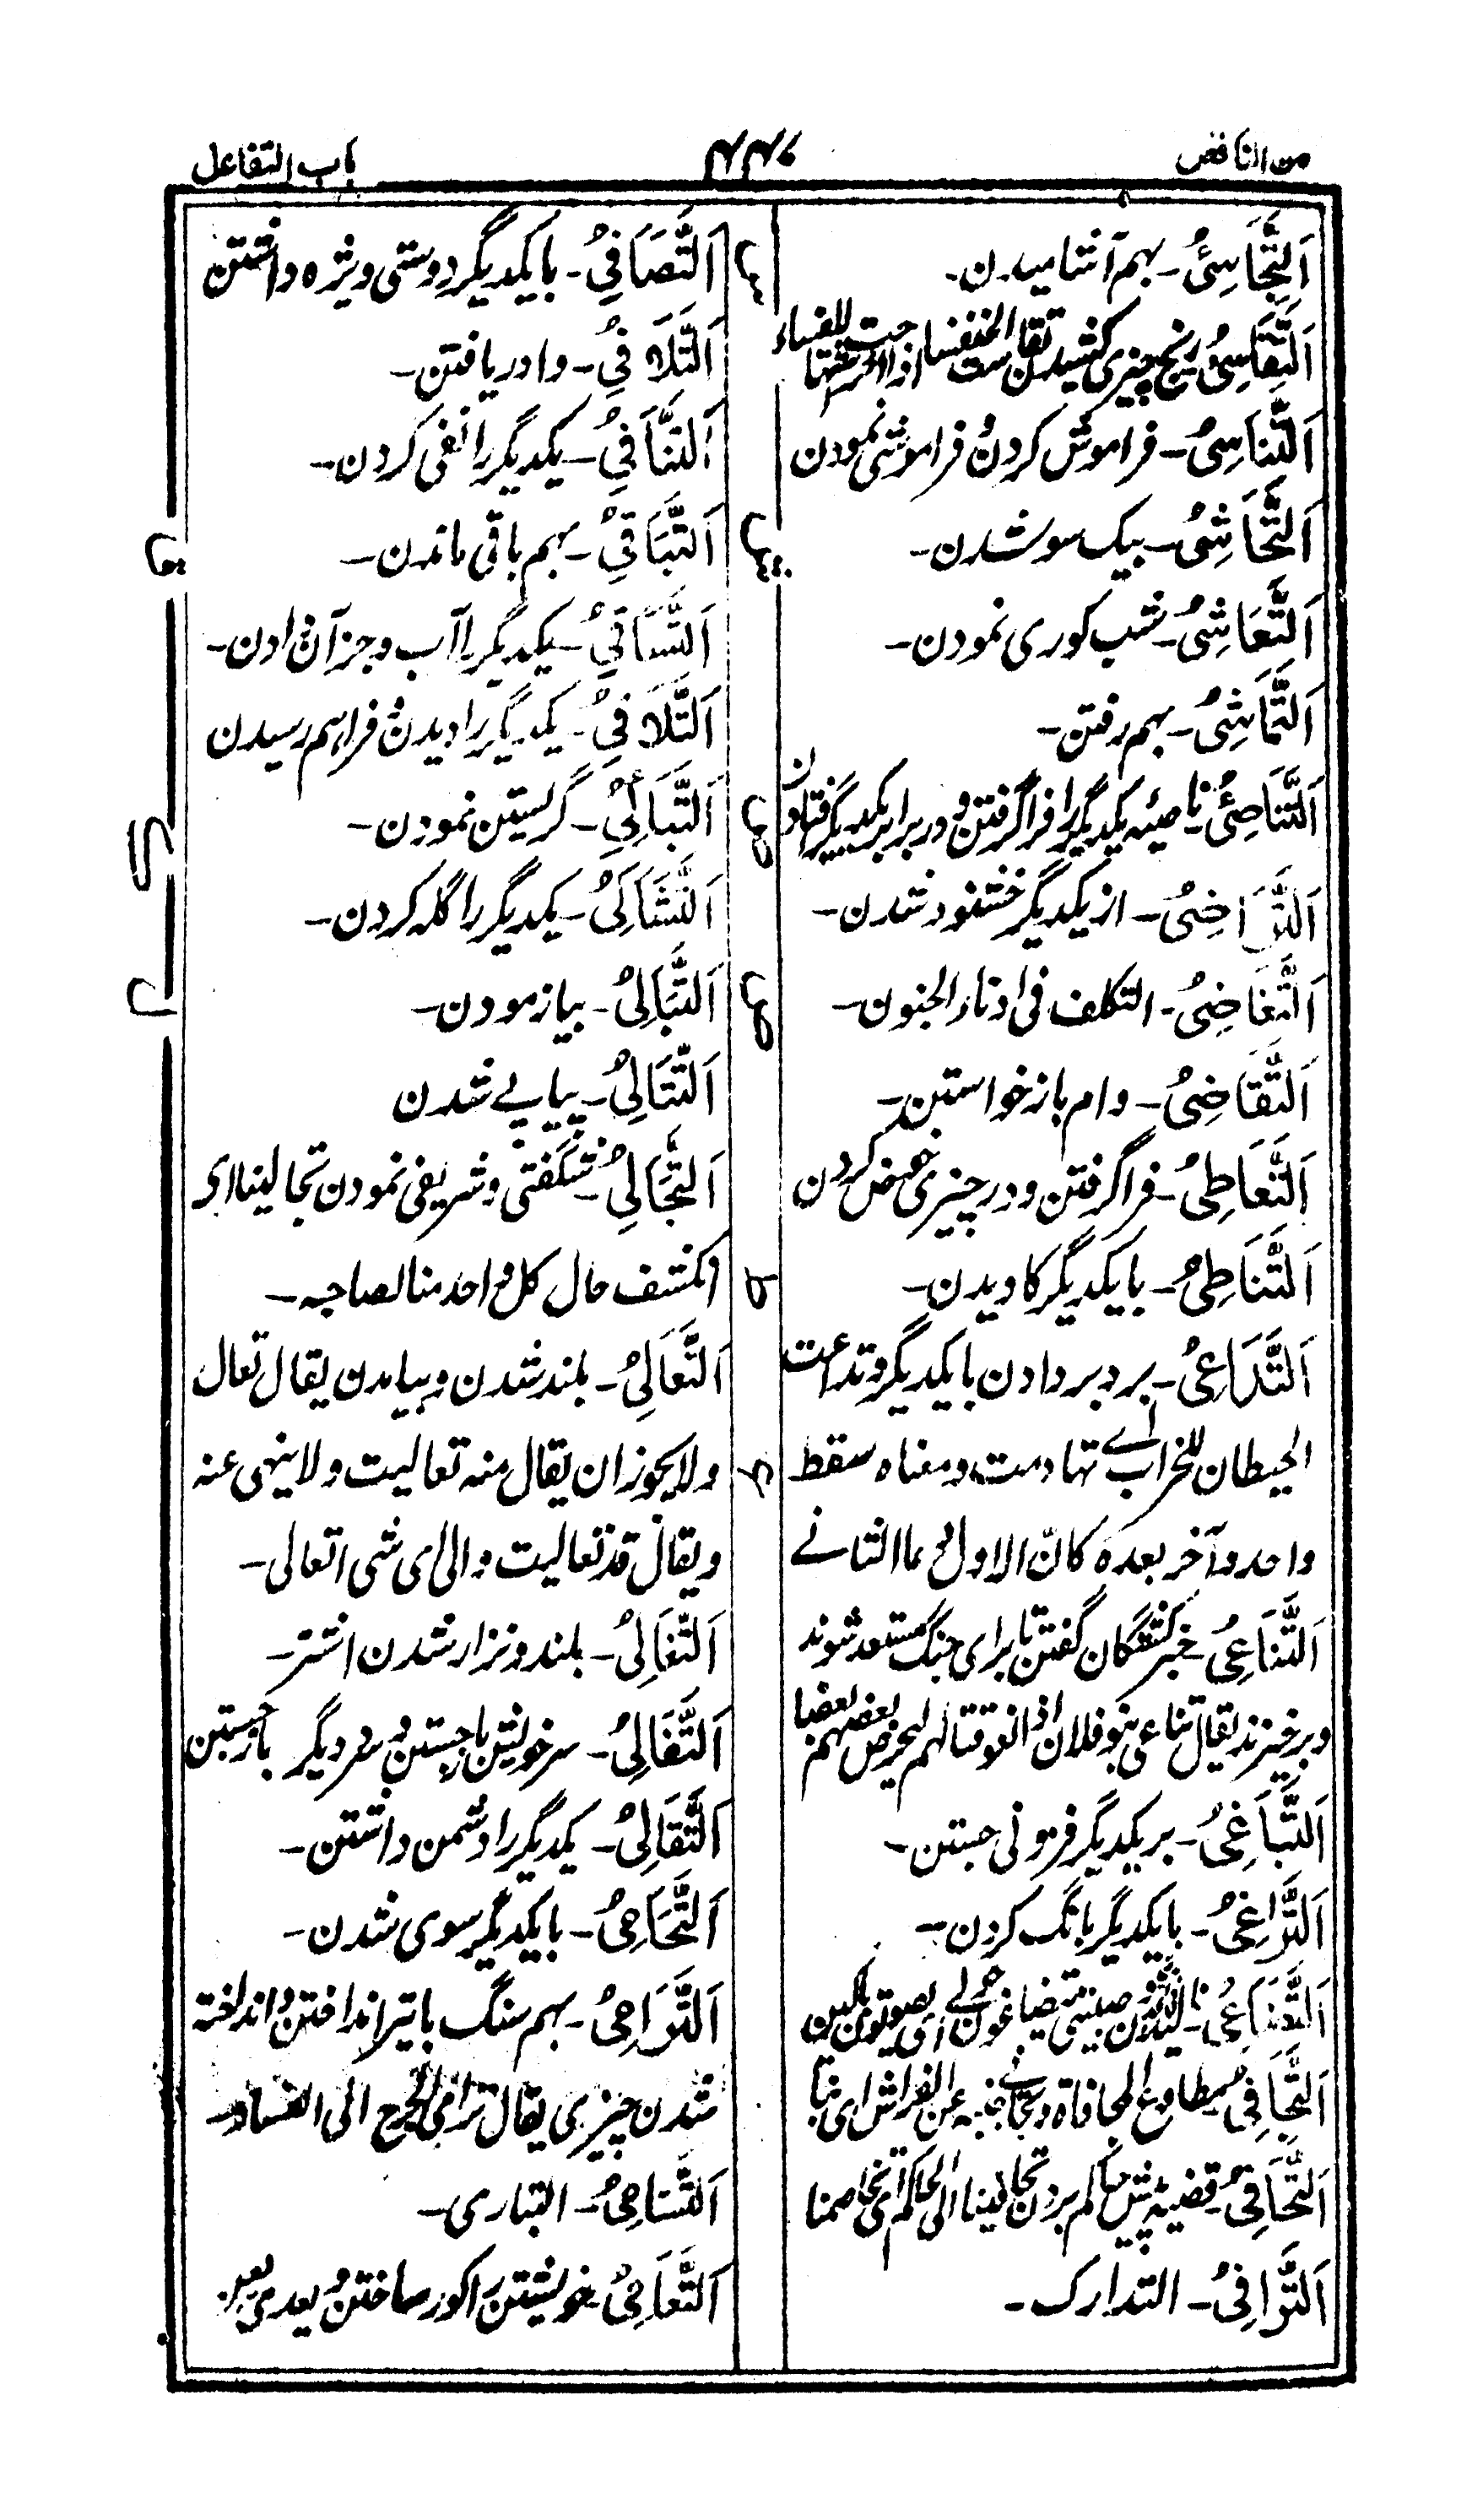 من الناقص
۴۴۷
باب التفاعل
اَلتَّحَاسِیُ۔ بہم آشامیدن۔
اَلتَّقَاسِیُ رنج چیزی کشیدن
اَلتَّنَاسِیُ۔ فراموش کردن و فراموشی نمودن
اَلتَّحَاشِیُ۔ بیک سو شدن۔
اَلتَّعَاشِیُ۔ شب کوری نمودن۔
اَلتَّمَاشِیُ۔ بہم رفتن۔
اَلتَّنَاصِیُ ناصیہ یکدیگر را فرا گرفتن و در برابر یکدیگر افتادن
اَلتَّرَاضِیُ۔ از یکدیگر خشنود شدن۔
اَلتَّغَاضِیُ۔ التکلف فی الجنون۔
اَلتَّقَاضِیُ۔ وام باز خواستن۔
اَلتَّعَاطِیُ۔ فرا گرفتن و در چیزی خوض کردن
اَلتَّنَاطِیُ۔ بایکدیگر کاویدن۔
اَلتَّدَاعِیُ۔ برد بر دادن بایکدیگر و تداعت
الحیطان للخراب اے تهادمت و معناه سقط
واحد و آخر بعده کان الاول دعا الثانے
اَلتَّنَاعِیُ۔ خبر کشتگان گفتن تا برای جنگ مستعد شوند
و برخیزند یقال تناعی بنو فلان فی القوم لیحرض بعضهم بعضا
اَلتَّبَاغِیُ۔ بر یکدیگر فزونی جستن۔
اَلتَّرَاغِیُ۔ بایکدیگر بانگ کردن۔
اَلتَّضَاغِیُ۔
اَلتَّجَافِیُ مطاوع المجافاة و تجافی جنبہ عن الفراش ای نبا
اَلتَّحَافِیُ۔ قضیہ پیش حاکم بردن تحافینا الی الحاکم ای تخاصمنا
اَلتَّرَافِیُ۔ التدارک۔
اَلتَّصَافِیُ۔ بایکدیگر دوستی ویژه داشتن
اَلتَّلَافِیُ۔ وا دریافتن۔
اَلتَّنَافِیُ۔ یکدیگر را نفی کردن۔
اَلتَّبَاقِیُ۔ بہم باقی ماندن۔
اَلتَّسَاقِیُ۔ یکدیگر را آب و جز آن دادن۔
اَلتَّلَاقِیُ۔ یکدیگر را دیدن و فراہم رسیدن
اَلتَّبَاکِیُ۔ گریستن نمودن۔
اَلتَّشَاکِیُ۔ یکدیگر را گلہ کردن۔
اَلتَّبَالِیُ۔ بیازمودن۔
اَلتَّتَالِیُ۔ پیاپے شدن
اَلتَّجَالِیُ۔ شگفتی و شریفی نمودن تجالینا ای
انکشف حال کل واحد منا لصاحبہ۔
اَلتَّعَالِیُ۔ بلند شدن و بیامدن یقال تعال
ولا یجوز ان یقال منہ تعالیت ولا ینهی عنہ
ویقال قد تعالیت والی ای شی اتعالی۔
اَلتَّغَالِیُ۔ بلند و نزار شدن اشتر۔
اَلتَّفَالِیُ۔ سر خویشتن باز جستن و سر دیگر باز جستن
اَلتَّقَالِیُ۔ یکدیگر را دشمن داشتن۔
اَلتَّحَامِیُ۔ بایکدیگر سوی شدن۔
اَلتَّرَامِیُ۔ بہم سنگ یا تیر انداختن و انداختہ
شدن چیزی یقال ترامی الجرح الی الفساد۔
اَلتَّسَامِیُ۔ التباری۔
اَلتَّعَامِیُ۔ خویشتن را کور ساختن و یعدی بعن